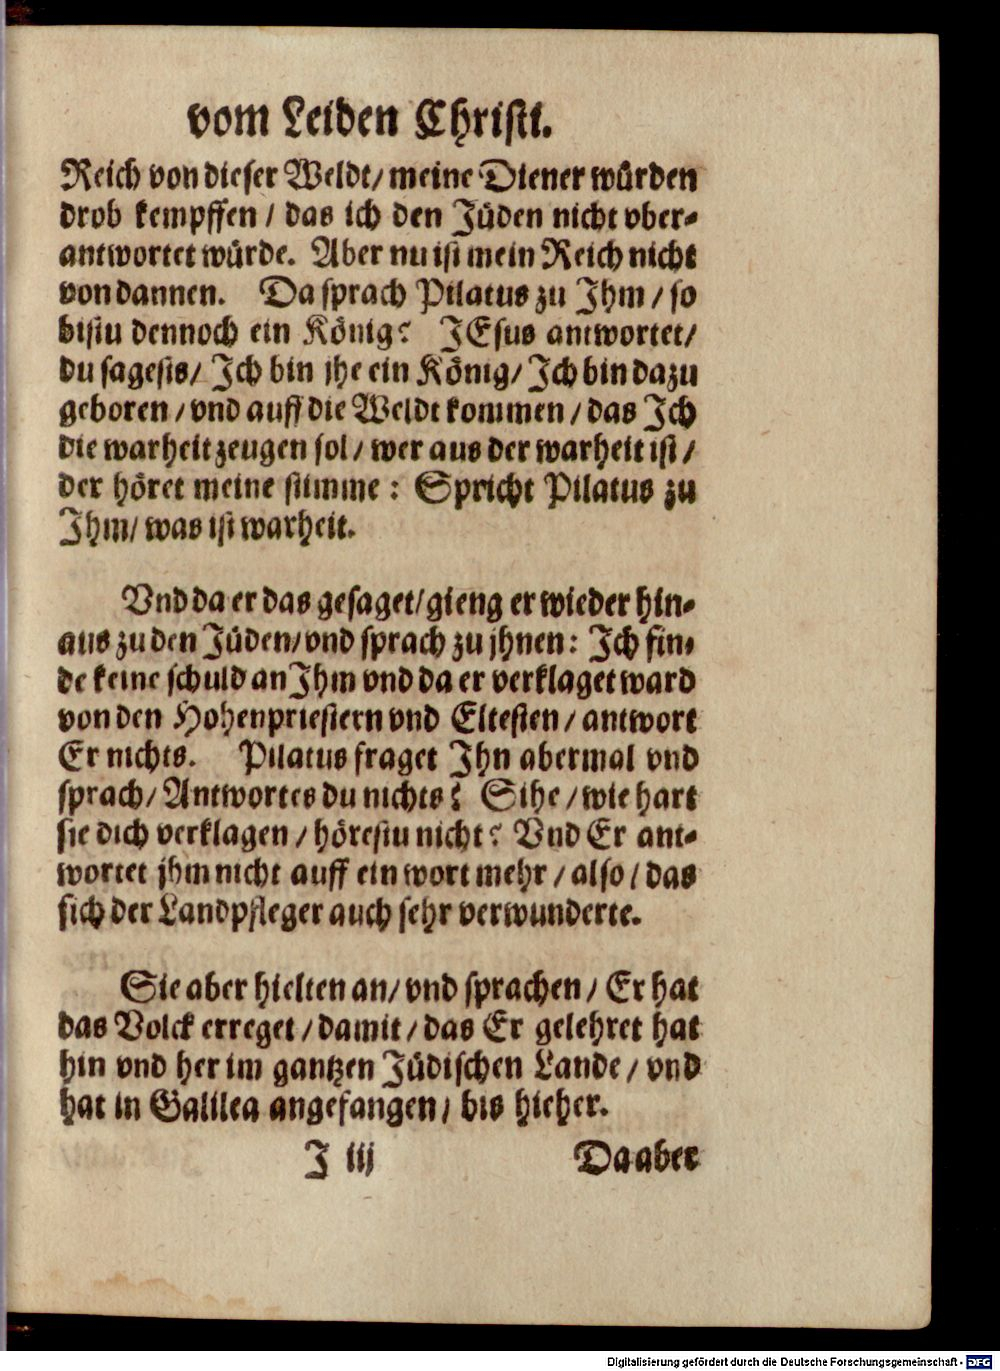 vom Leiden Christi.
Reich von dieser Weldt/ meine Diener würden
drob kempffen / das ich den Jüden nicht vber-
antwortet würde. Aber nu ist mein Reich nicht
von dannen. Da sprach Pilatus zu Jhm / so
bistu dennoch ein König? JEsus antwortet/
du sagests/ Jch bin jhe ein König/ Jch bin dazu
geboren / vnd auff die Weldt kommen / das Jch
die warheit zeugen sol / wer aus der warheit ist /
der höret meine stimme : Spricht Pilatus zu
Jhm/ was ist warheit.
Vnd da er das gesaget/ gieng er wieder hin-
aus zu den Jüden/ vnd sprach zu jhnen: Jch fin-
de keine schuld an Jhm vnd da er verklaget ward
von den Hohenpriestern vnd Eltesten / antwort
Er nichts. Pilatus fraget Jhn abermal vnd
sprach/ Antwortes du nichts? Sihe / wie hart
sie dich verklagen / hörestu nicht? Vnd Er ant-
wortet jhm nicht auff ein wort mehr / also / das
sich der Landpfleger auch sehr verwunderte.
Sie aber hielten an/ vnd sprachen / Er hat
das Volck erreget / damit / das Er gelehret hat
hin vnd her im gantzen Jüdischen Lande / vnd
hat in Galilea angefangen / bis hieher.
J iij Da aber
Digitalisierung gefördert durch die Deutsche Forschungsgemeinschaft - DFG